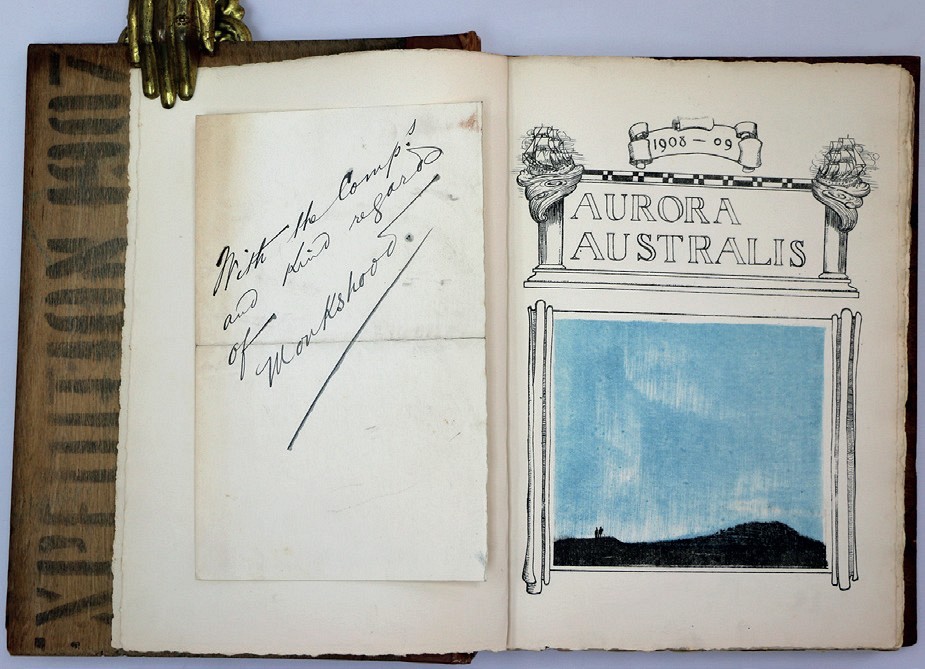 With the Comp:s
and kind regards
of
Monkshood.
1908 — 09
AURORA
AUSTRALIS